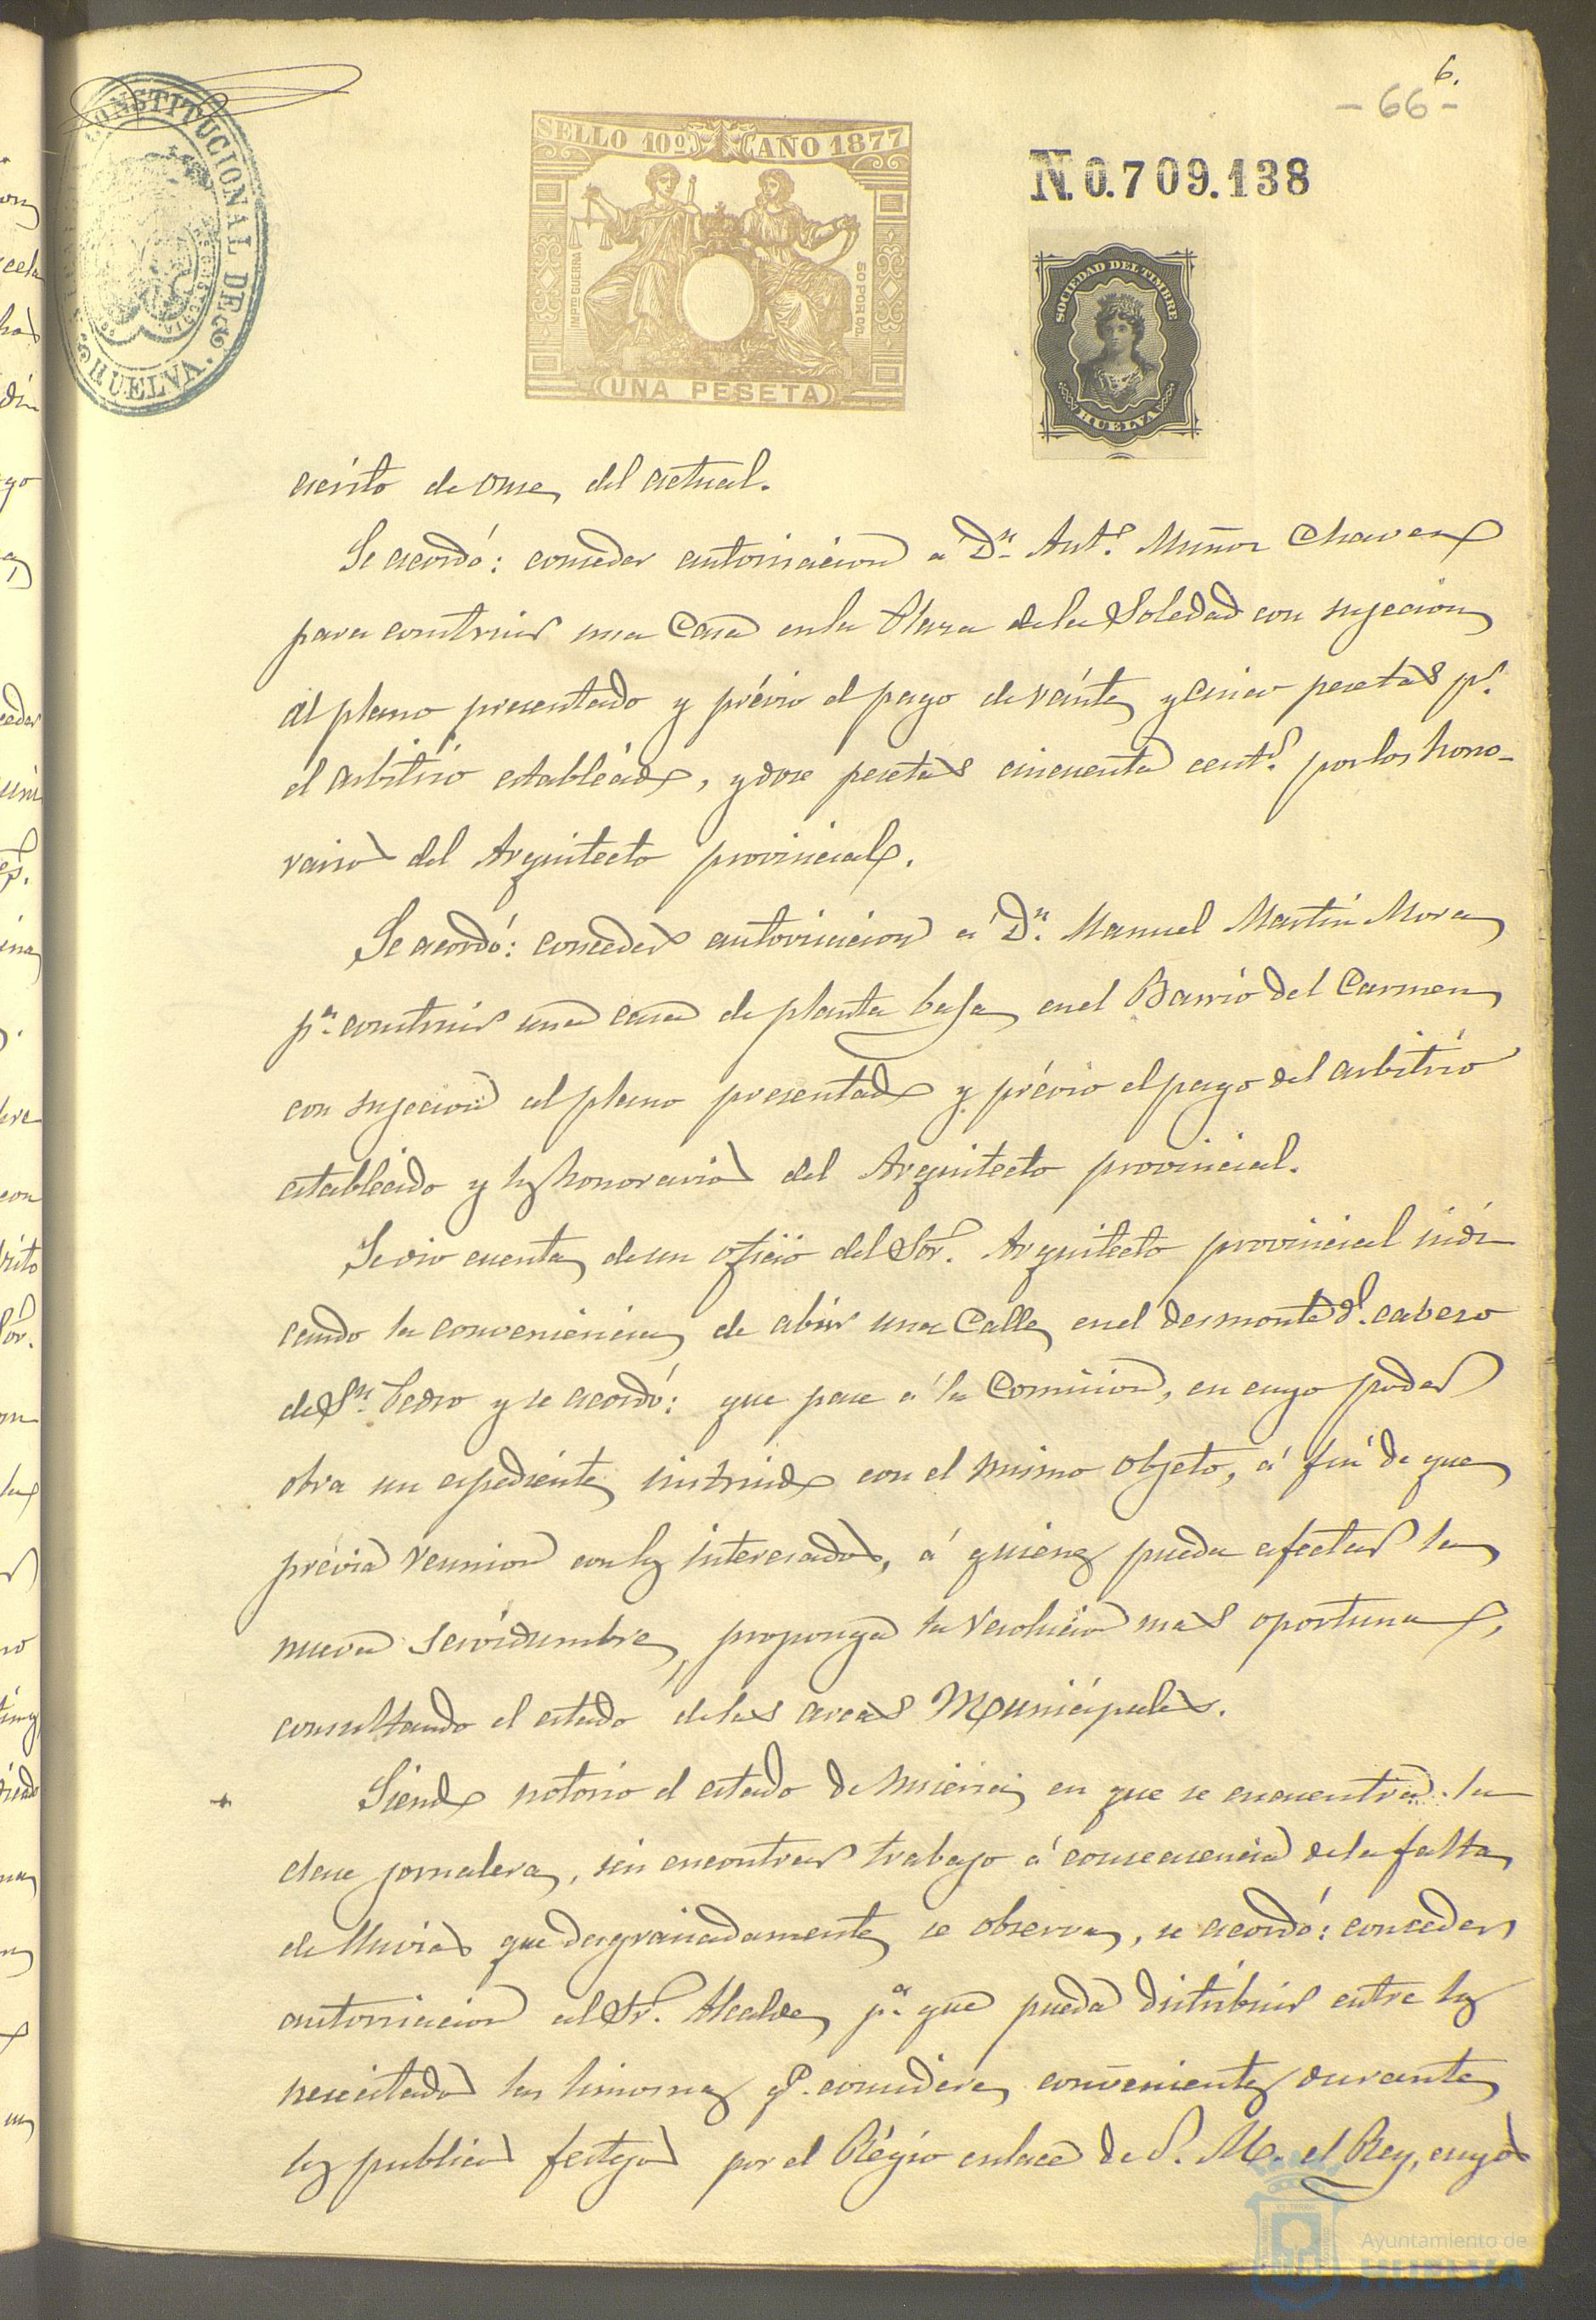 6.
- 66 -
CONSTITUCIONAL DE
HUELVA
SELLO 10º AÑO 1877
IMPTO GUERRA
50 POR Oo.
UNA PESETA
N.0.709.138
SOCIEDAD DEL TIMBRE
HUELVA
crito de once del actual.
Se acordó: conceder autorizacion á Dn. Anto. Muñoz Chavez
para construir una Casa en la Plaza de la Soledad con sujecion
al plano presentado y prévio el pago de veinte y cinco pesetas pr.
el arbitrio establecido, y doce pesetas cincuenta cents. por los hono-
rarios del Arquitecto provincial.
Se acordó: conceder autorizacion á Dn. Manuel Martin Mora
pa. construir una casa de planta baja en el Barrio del Carmen
con sujecion al plano presentado y prévio el pago del arbitrio
establecido y los honorarios del Arquitecto provincial.
Se dio cuenta de un oficio del Sor. Arquitecto provincial indi
cando la conveniencia de abrir una Calle en el desmonte dl. cabezo
de Sn. Pedro y se acordó: que pase á la Comision, en cuyo poder
obra un espediente instruido con el mismo objeto, á fin de que
prévia reunion con los interesados, á quienes pueda afectar la
nueva servidumbre, proponga la resolucion mas oportuna,
consultando el estado de las arcas Municipales.
Siendo notorio el estado de miseria en que se encuentra la
clase jornalera, sin encontrar trabajo á consecuencia de la falta
de lluvias que desgraciadamente se observa, se acordó: conceder
autorizacion al Sr. Alcalde pa. que pueda distribuir entre los
necesitados las limosnas qe. considere convenientes durante
los publicos festejos por el Régio enlace de S. M. el Rey, cuyos
Ayuntamiento de
HUELVA